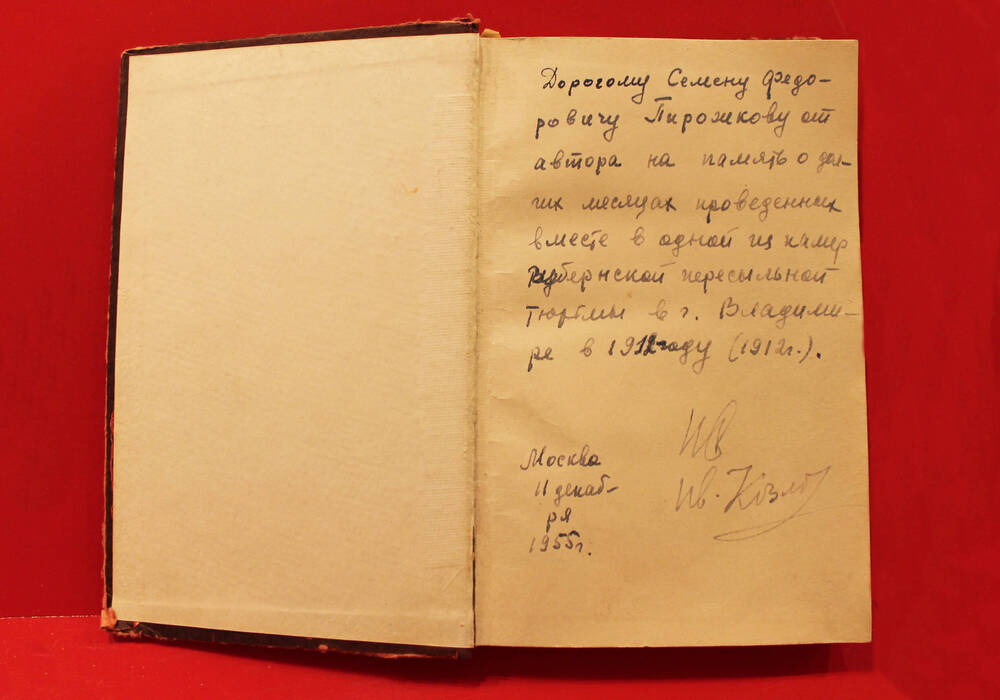 Дорогому Семену Федо-
ровичу Пирожкову от
автора на память о дол-
гих месяцах проведенных
вместе в одной из камер
губернской пересыльной
тюрьмы в г. Владими-
ре в 1912 году (1912 г.).
Ив. Козлов
Москва
11 декаб-
ря
1955 г.